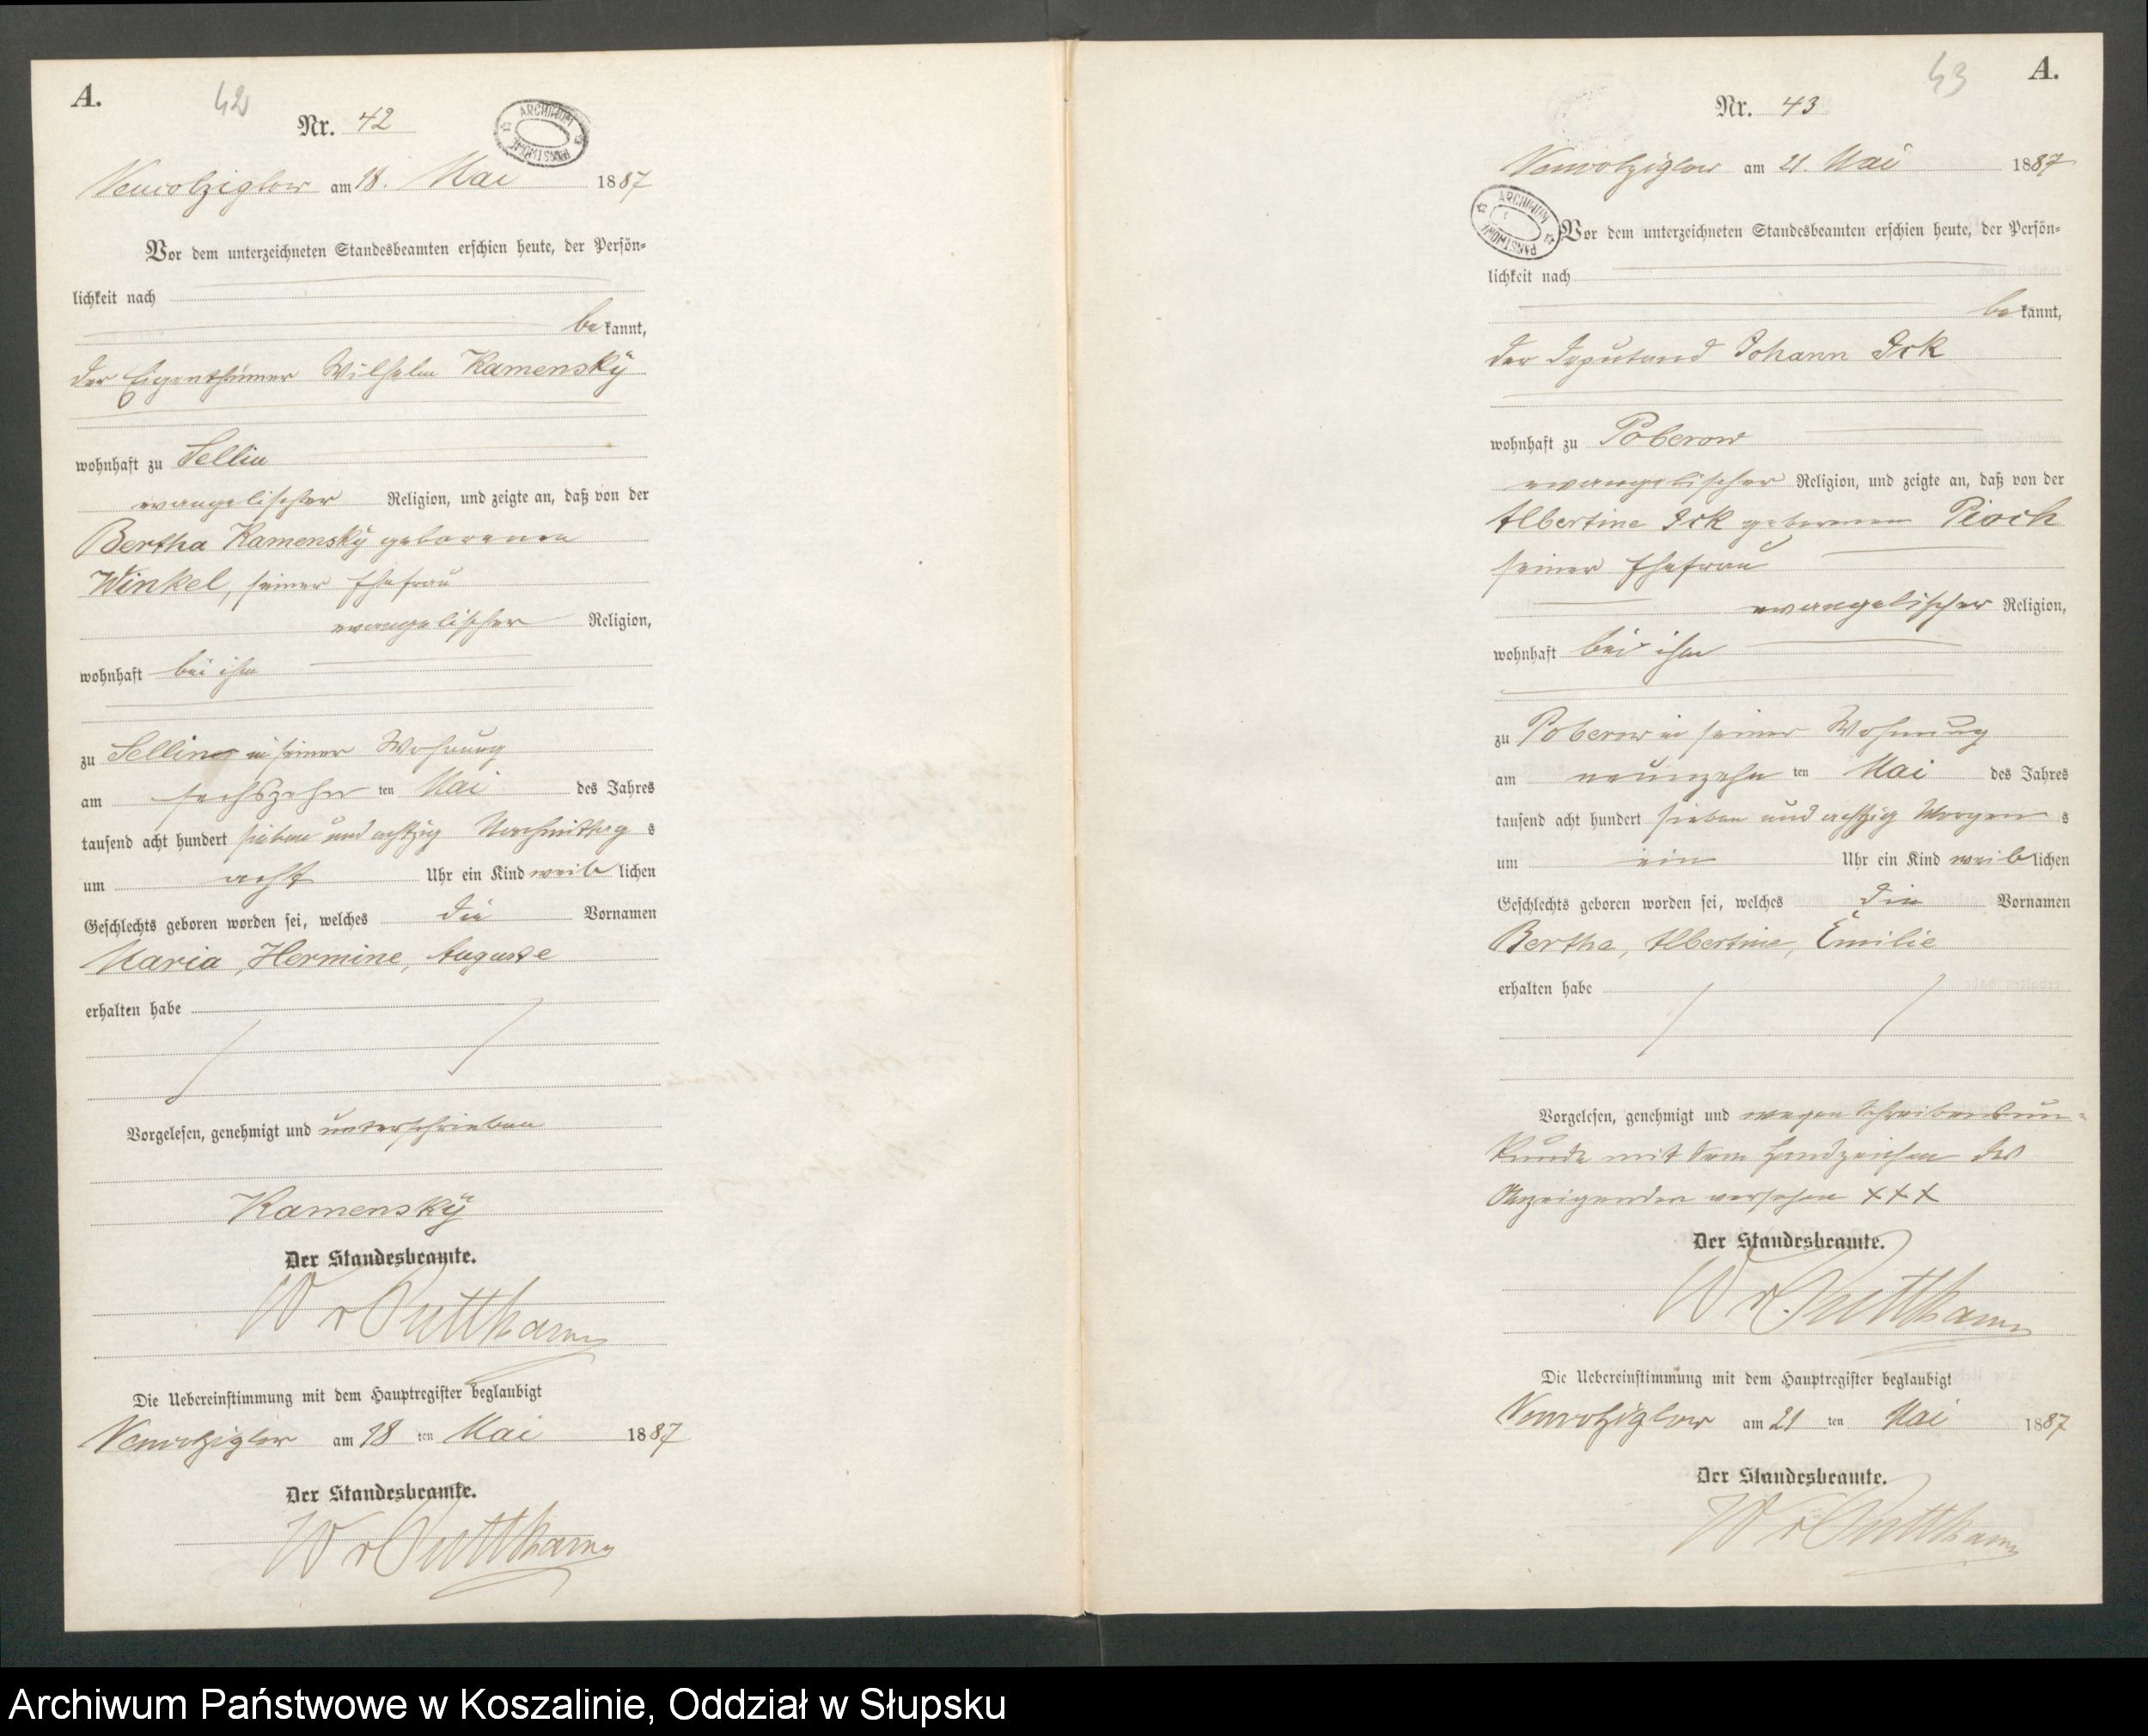 A.
42
Nr. 42
ARCHIWUM PAŃSTWOWE
Neuwolziglow am 18. Mai 1887
Vor dem unterzeichneten Standesbeamten erschien heute, der Persön=
lichkeit nach
bekannt,
der Eigenthümer Wilhelm Kamensky
wohnhaft zu Sellin
evangelischer Religion, und zeigte an, daß von der
Bertha Kamensky geborenen
Winkel, seiner Ehefrau
evangelischer Religion,
wohnhaft bei ihm
zu Sellin in seiner Wohnung
am sechszehn ten Mai des Jahres
tausend acht hundert sieben und achtzig Nachmittags
um acht Uhr ein Kind weiblichen
Geschlechts geboren worden sei, welches die Vornamen
Maria, Hermine, Auguste
erhalten habe
Vorgelesen, genehmigt und unterschrieben
Kamensky
Der Standesbeamte.
W v Puttkamer
Die Uebereinstimmung mit dem Hauptregister beglaubigt
Neuwolziglow am 18 ten Mai 1887
Der Standesbeamte.
W v Puttkamer
43
A.
Nr. 43
Neuwolziglow am 21. Mai 1887
ARCHIWUM PAŃSTWOWE
Vor dem unterzeichneten Standesbeamten erschien heute, der Persön=
lichkeit nach
bekannt,
der Deputand Johann Ick
wohnhaft zu Poberow
evangelischer Religion, und zeigte an, daß von der
Albertine Ick geborenen Pioch
seiner Ehefrau
evangelischer Religion,
wohnhaft bei ihm
zu Poberow in seiner Wohnung
am neunzehn ten Mai des Jahres
tausend acht hundert sieben und achtzig Morgens
um ein Uhr ein Kind weiblichen
Geschlechts geboren worden sei, welches die Vornamen
Bertha, Albertine, Emilie
erhalten habe
Vorgelesen, genehmigt und wegen Schreibensun=
kunde mit dem Handzeichen des
Anzeigenden versehen XXX
Der Standesbeamte.
W v Puttkamer
Die Uebereinstimmung mit dem Hauptregister beglaubigt
Neuwolziglow am 21 ten Mai 1887
Der Standesbeamte.
W v Puttkamer
Archiwum Państwowe w Koszalinie, Oddział w Słupsku